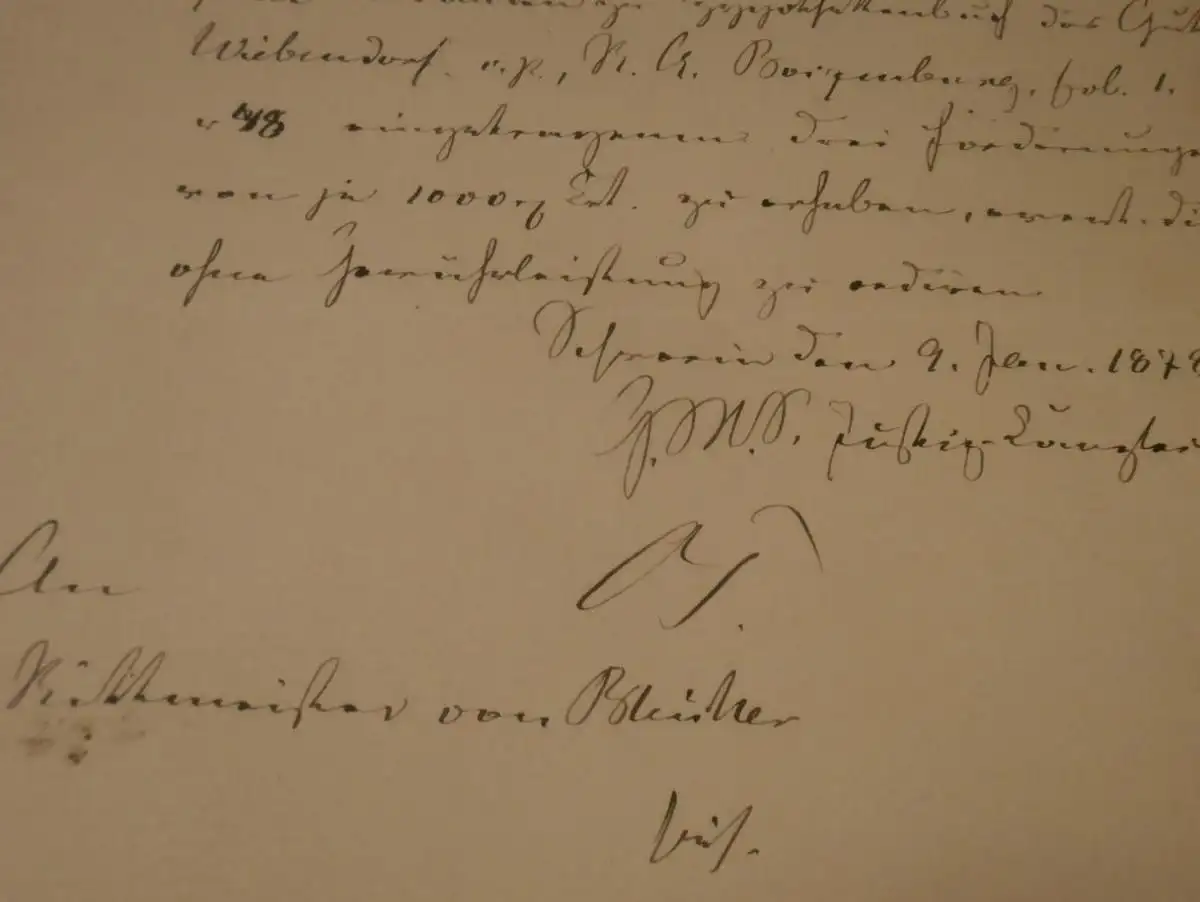 zu Hypothekenbuch des Gut
Wiebendorf c. p., R. A. Boizenburg, fol. 1.
48 eingetragenen drei Forderunge
von je 1000 Ct. zu erheben, event. die
ohne Gewährleistung zu cediren
Schwerin den 9. Jan. 1878
G. M. S. Justiz-Canzlei
An
Rittmeister von Blücher